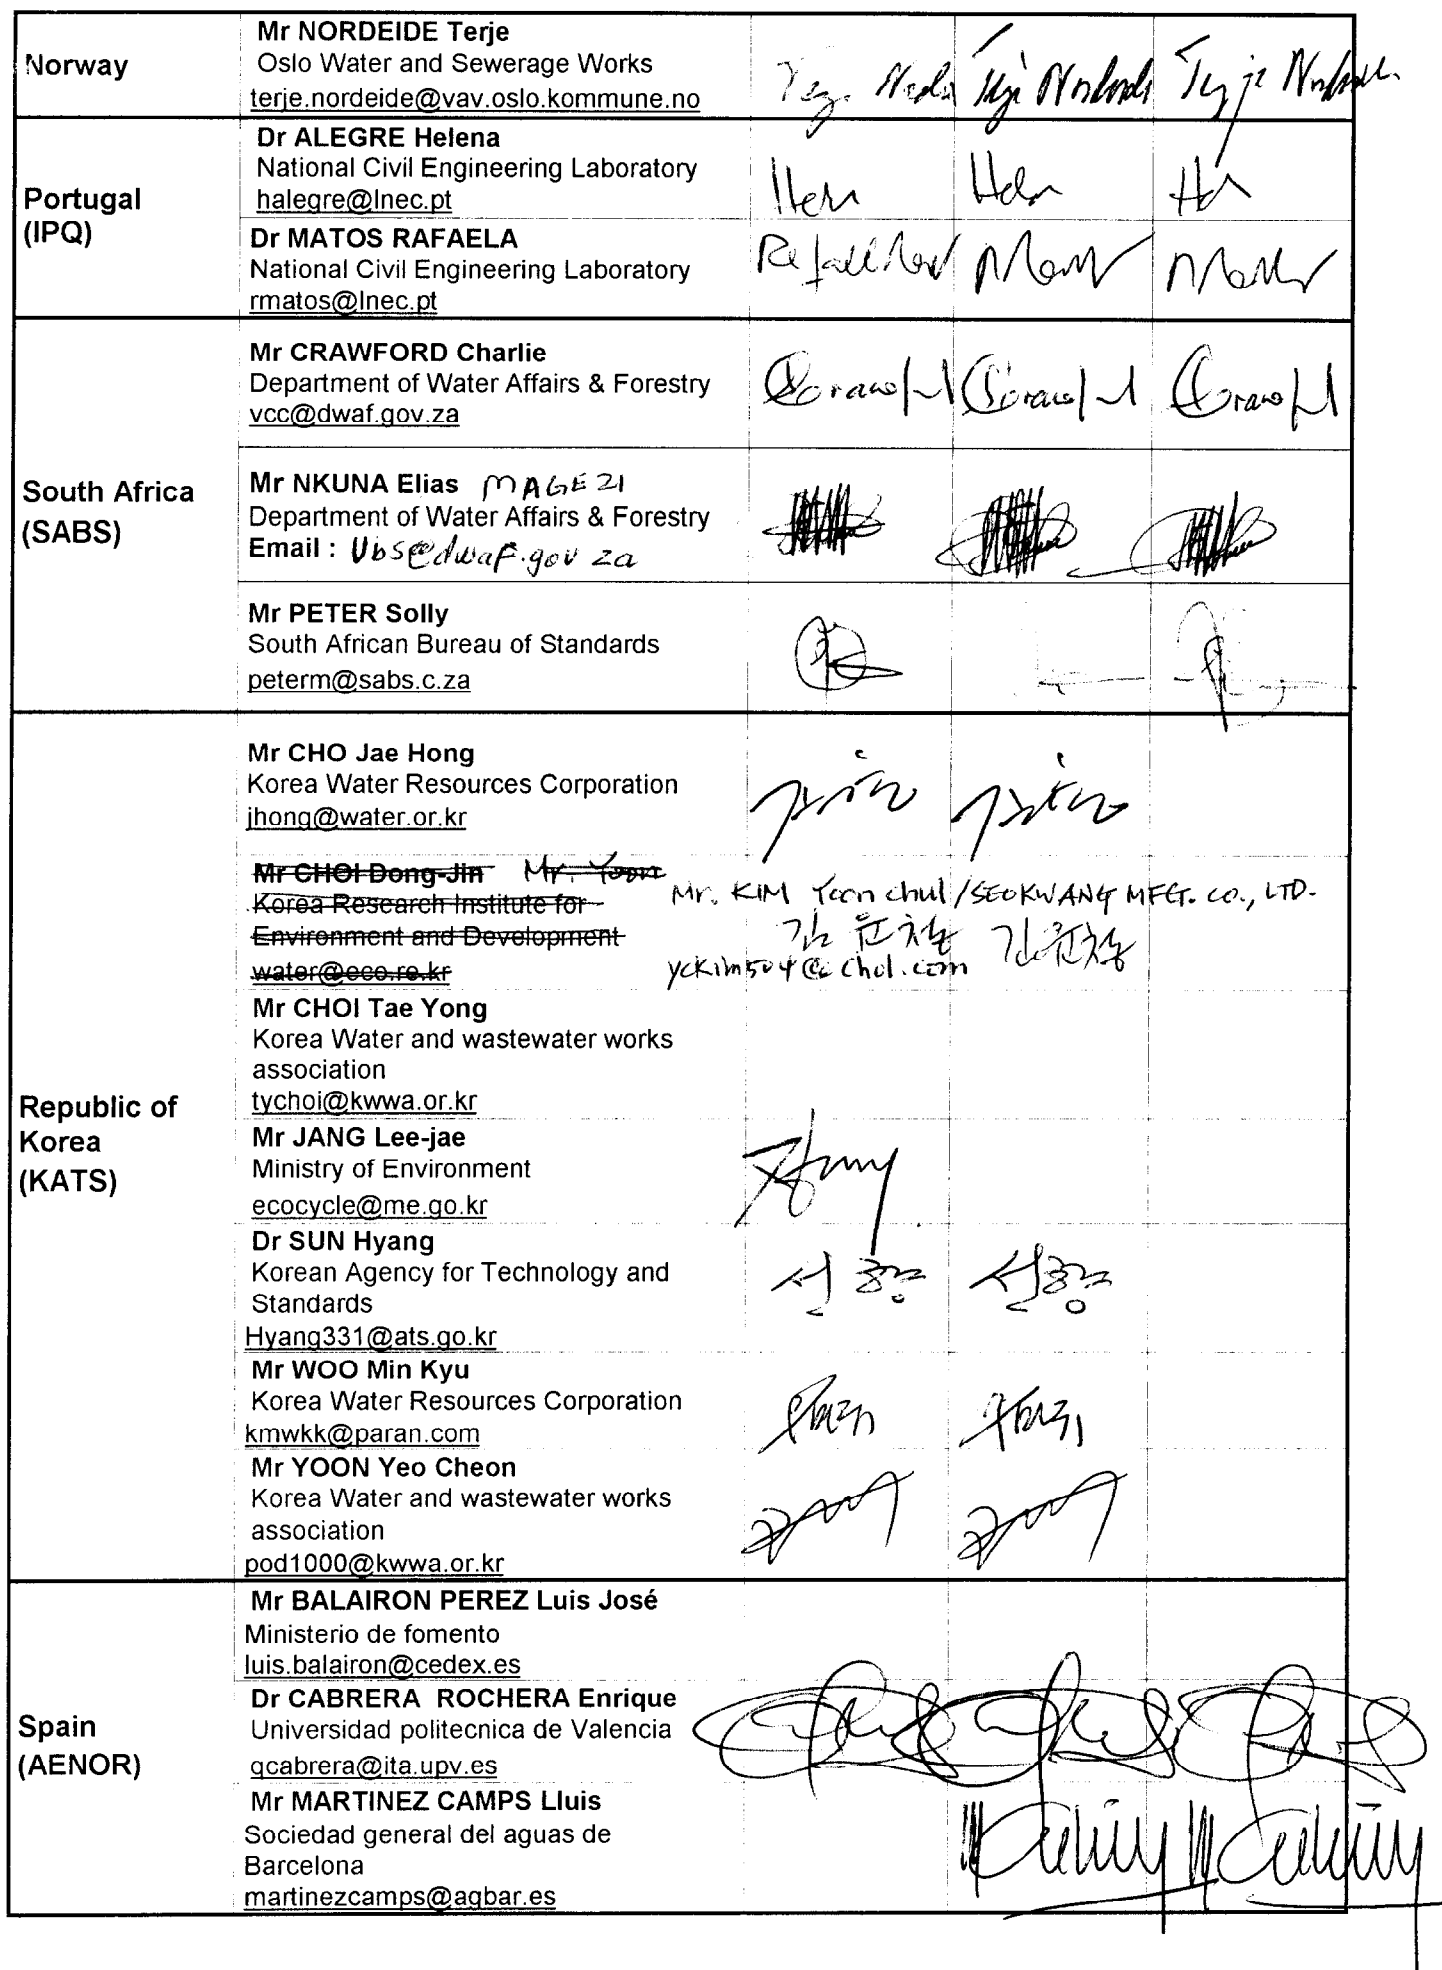 Norway
Mr NORDEIDE Terje
Oslo Water and Sewerage Works
terje.nordeide@vav.oslo.kommune.no
Portugal
(IPQ)
Dr ALEGRE Helena
National Civil Engineering Laboratory
halegre@lnec.pt
Dr MATOS RAFAELA
National Civil Engineering Laboratory
rmatos@lnec.pt
South Africa
(SABS)
Mr CRAWFORD Charlie
Department of Water Affairs & Forestry
vcc@dwaf.gov.za
Mr NKUNA Elias MAGEZI
Department of Water Affairs & Forestry
Email : Vbs@dwaf.gov za
Mr PETER Solly
South African Bureau of Standards
peterm@sabs.c.za
Republic of
Korea
(KATS)
Mr CHO Jae Hong
Korea Water Resources Corporation
jhong@water.or.kr
Mr CHOI Dong-Jin Mr. Yoon
Korea Research Institute for
Environment and Development
water@eco.re.kr
Mr. KIM Yoon chul / SEOKWANG MFG. CO., LTD.
김윤철 김윤철
yckim504@chol.com
Mr CHOI Tae Yong
Korea Water and wastewater works
association
tychoi@kwwa.or.kr
Mr JANG Lee-jae
Ministry of Environment
ecocycle@me.go.kr
Dr SUN Hyang
Korean Agency for Technology and
Standards
Hyang331@ats.go.kr
선향 선향
Mr WOO Min Kyu
Korea Water Resources Corporation
kmwkk@paran.com
Mr YOON Yeo Cheon
Korea Water and wastewater works
association
pod1000@kwwa.or.kr
Spain
(AENOR)
Mr BALAIRON PEREZ Luis José
Ministerio de fomento
luis.balairon@cedex.es
Dr CABRERA ROCHERA Enrique
Universidad politecnica de Valencia
qcabrera@ita.upv.es
Mr MARTINEZ CAMPS Lluis
Sociedad general del aguas de
Barcelona
martinezcamps@agbar.es